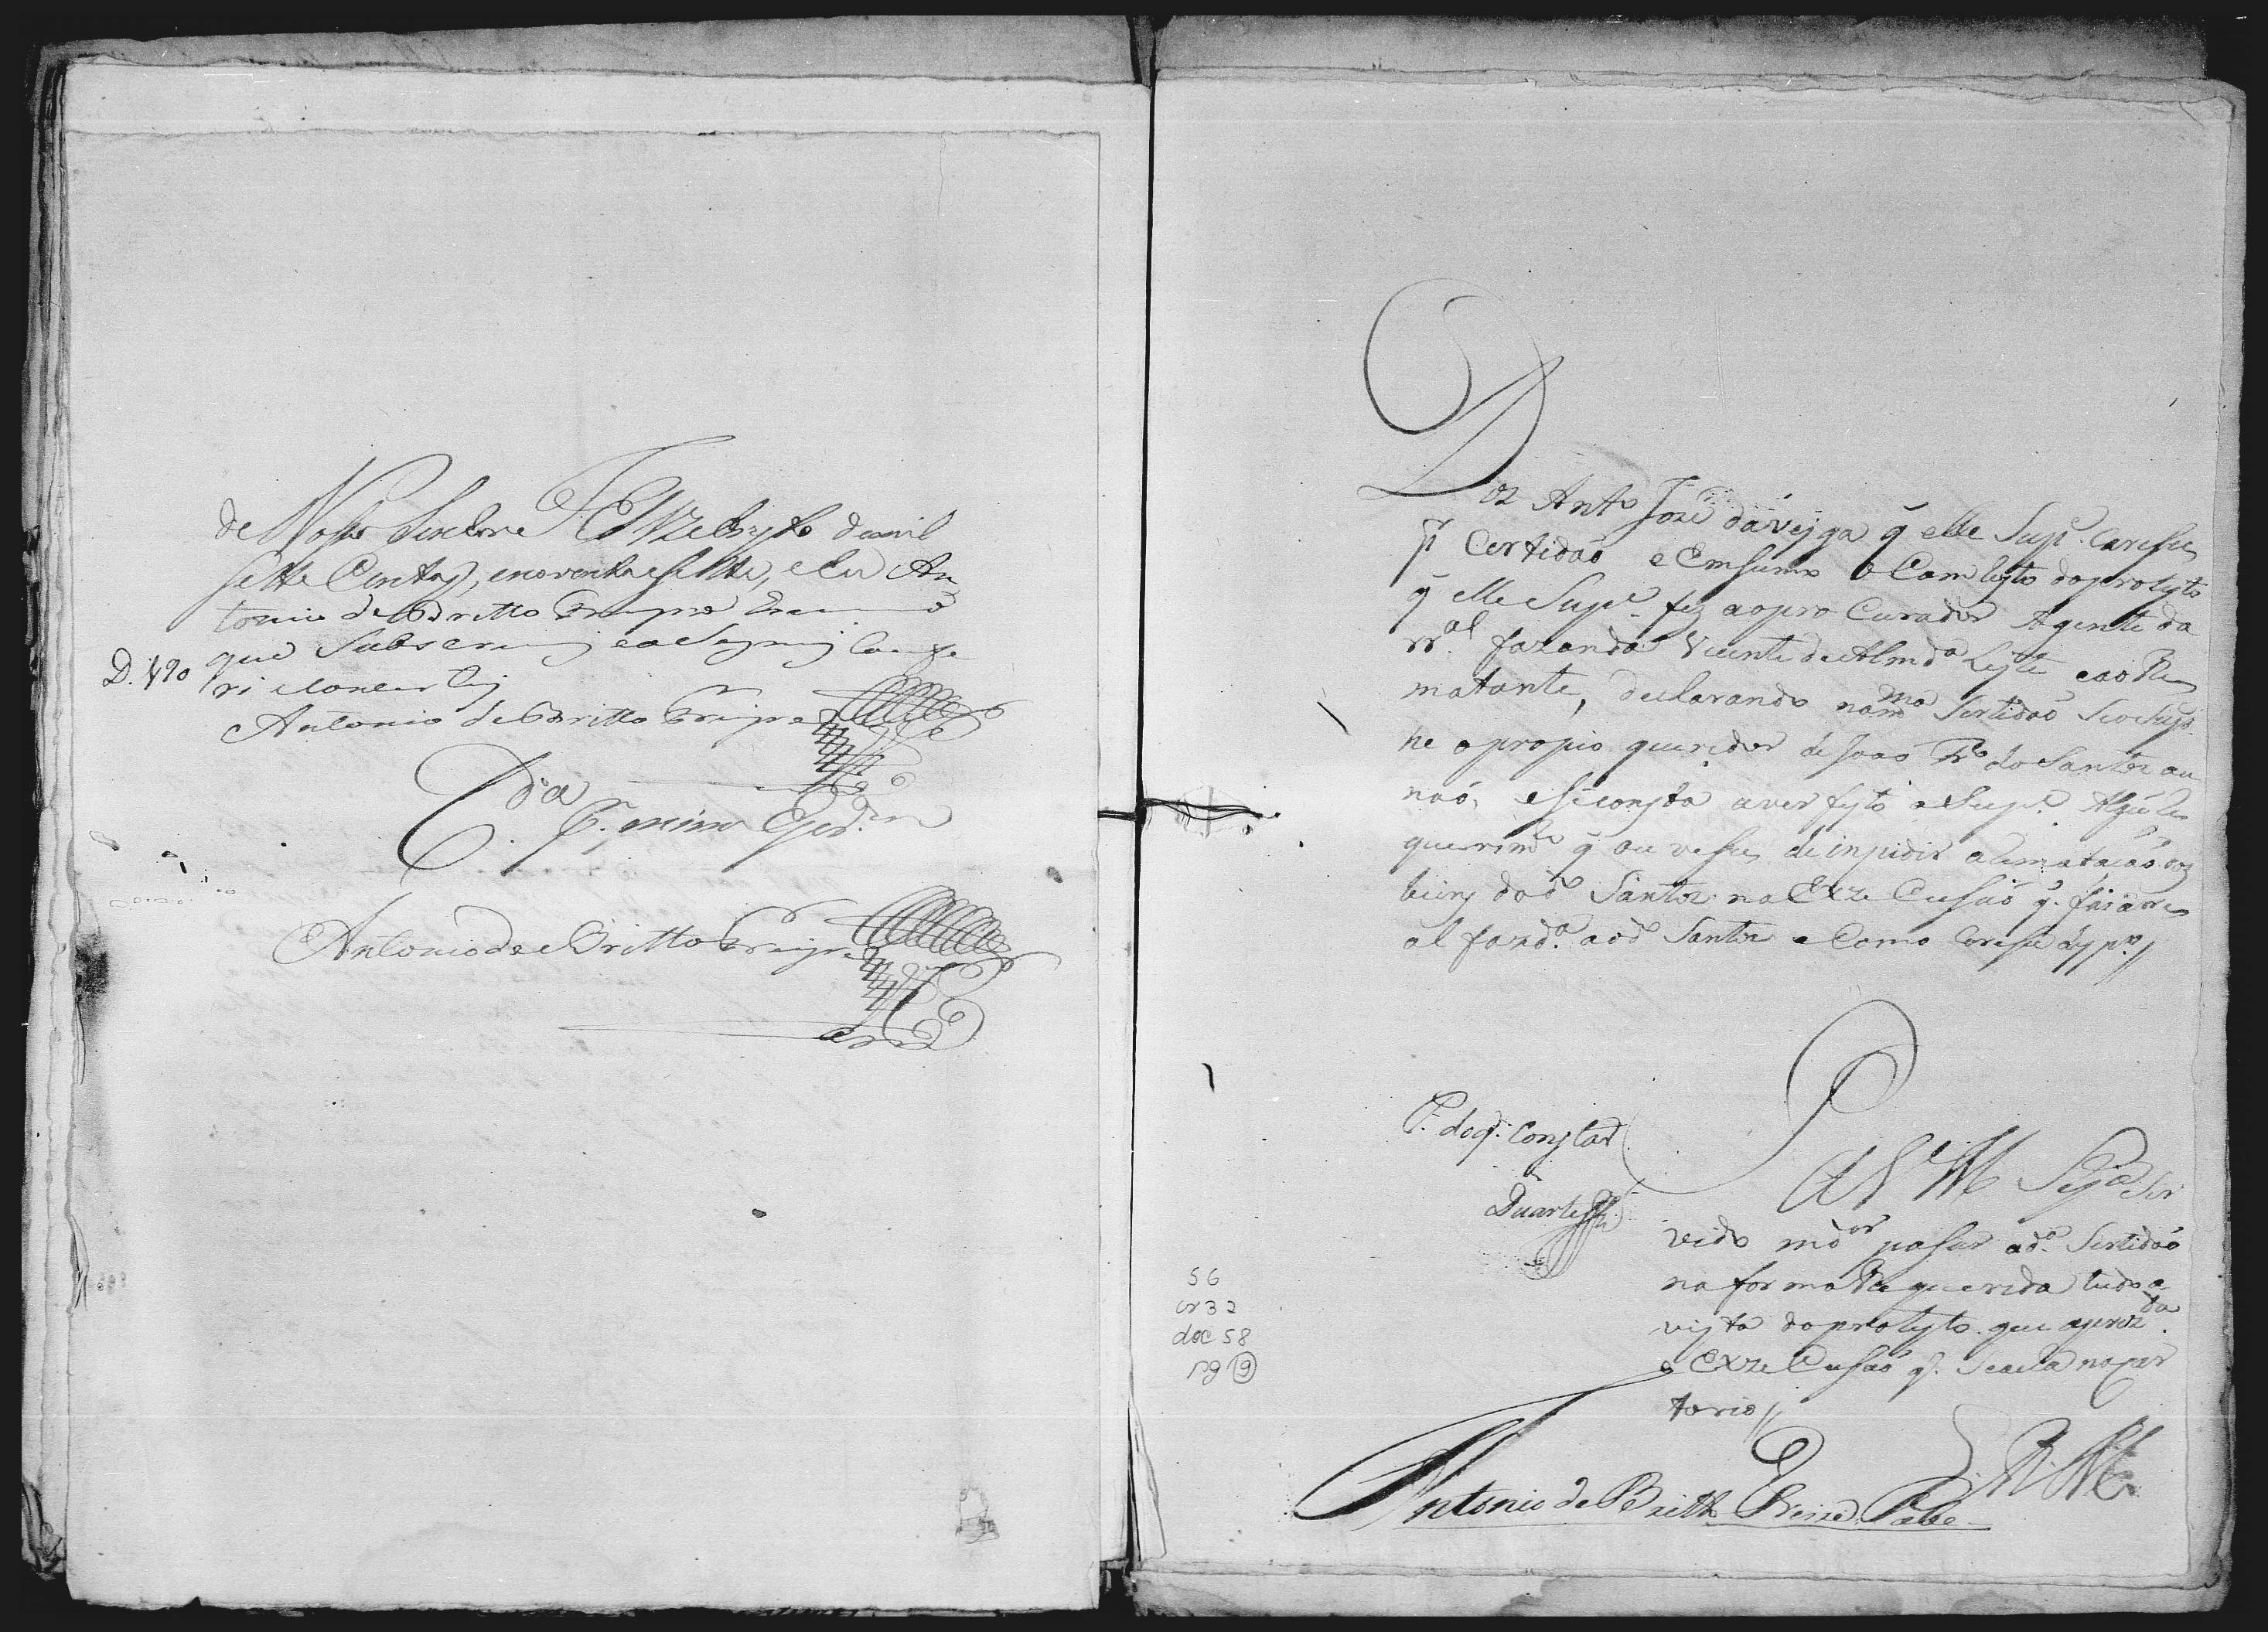 de Nosso Senhor JESUZ chrysto de mil
sette Centos, e noventa e sette, e Eu An
tonio de Britto Freyre Escrivaõ
que Subscrevj e a Signey Comfe
ri e Concertey
D. 490
Antonio de Britto Freyre
C.da
P. mim Escr.am
Antonio de Britto Freyre
Diz Ant.o Joze da Veyga q̃ elle Sup.e Caresse
p.r Certidaõ e Emsumo o Comteyto do protesto
q̃ elle Sup.e fez ao pro Curador Agente da
rr.al fazanda Vicente de Almd.a Leyte e ao Re
matante, declarando na m.ma Sertidaõ Se o Sup.e
he o propio queredor de Joaõ R.o do Santos ou
naõ, e se consta aver feyto o Sup.e Algũ Re
querim.to q̃ ouvesse de inpidir a Rematacaõ dos
beins do d.o Santos na Exze Cusaõ q̃ faz a re
al fazd.a ao d.o Santos e Como Caresse Desp.o
P. do q̃ Constar
Duarte
P
A V M Seja Ser
vido md.or passar a d.a Sertidaõ
na forma Re querida tudo a
vista do protesto que aprez.da
e Exze Cusaõ q̃ Se acha no car
torio
E. R. M.ce
Antonio de Britto Freire
56
cx 32
doc 58
pg 9